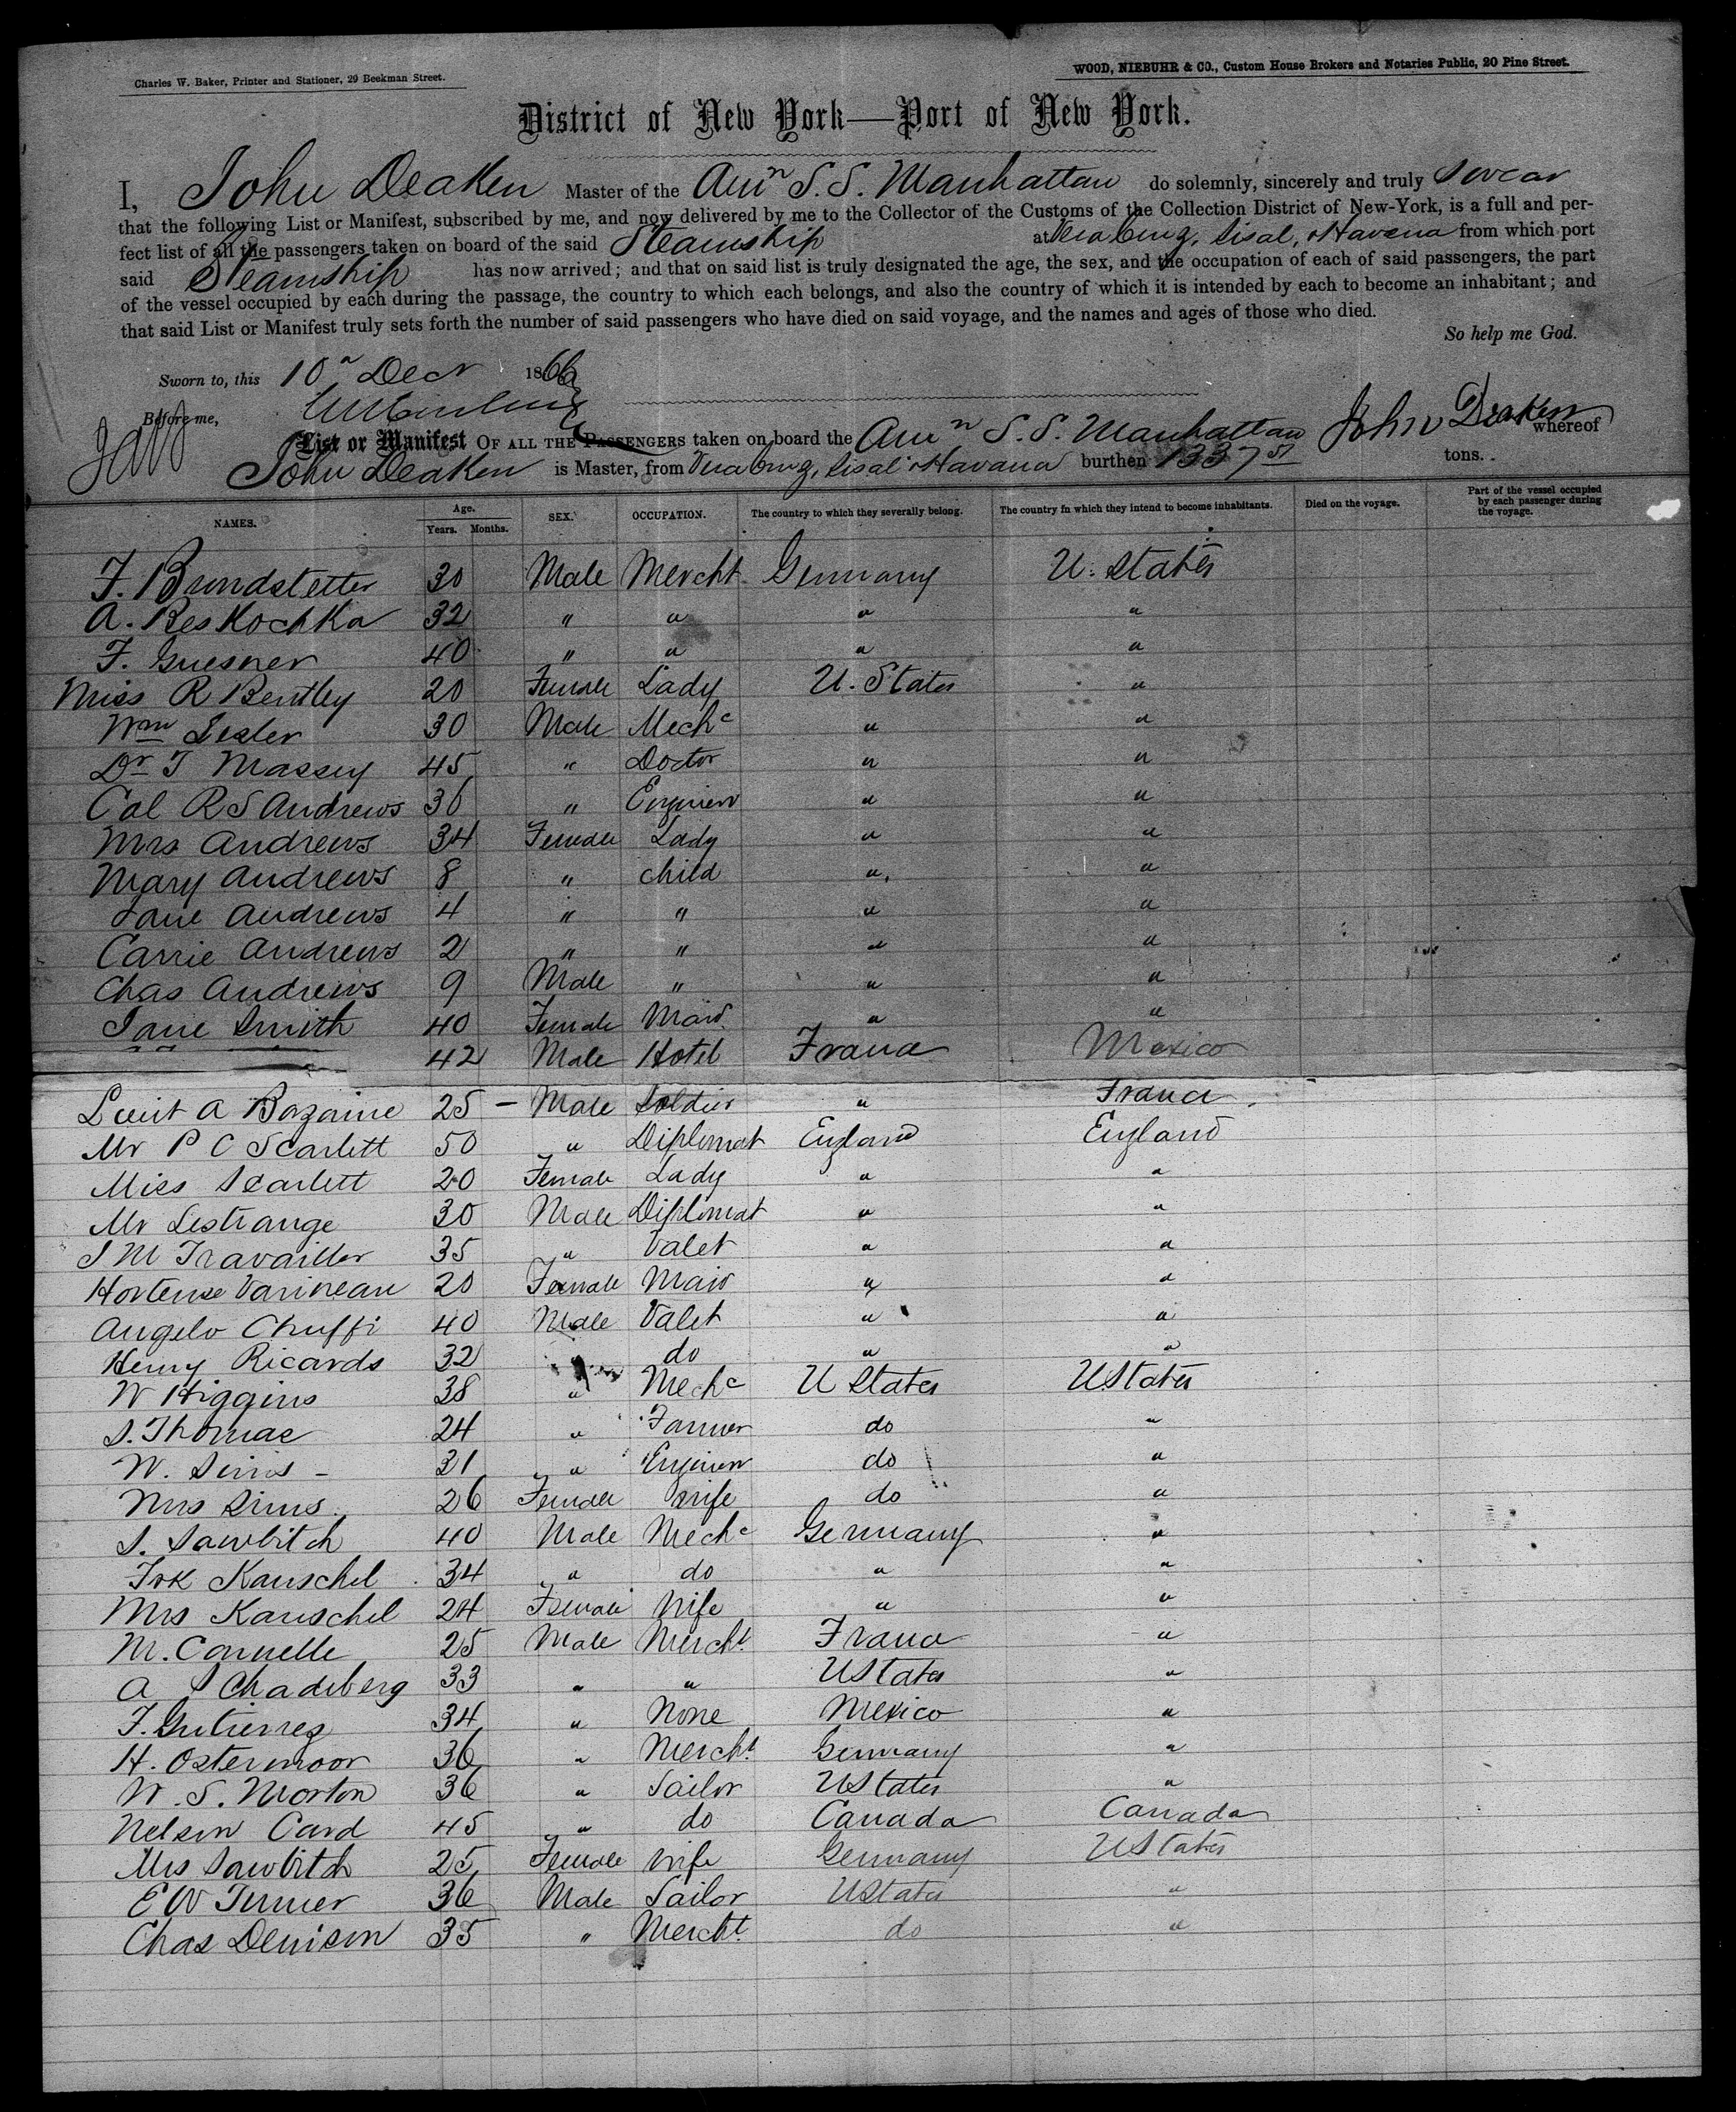 Charles W. Baker, Printer and Stationer, 29 Beekman Street.
WOOD, NIEBUHR & CO., Custom House Brokers and Notaries Public, 20 Pine Street.
District of New York—Port of New York.
I, John Deaken Master of the Amn S.S. Manhattan do solemnly, sincerely and truly swear
that the following List or Manifest, subscribed by me, and now delivered by me to the Collector of the Customs of the Collection District of New-York, is a full and per-
fect list of all the passengers taken on board of the said Steamship at Vera Cruz, Sisal, & Havana from which port
said Steamship has now arrived; and that on said list is truly designated the age, the sex, and the occupation of each of said passengers, the part
of the vessel occupied by each during the passage, the country to which each belongs, and also the country of which it is intended by each to become an inhabitant; and
that said List or Manifest truly sets forth the number of said passengers who have died on said voyage, and the names and ages of those who died.
So help me God.
Sworn to, this 10 Decr 1866
Before me,
John Deaken
List or Manifest OF ALL THE PASSENGERS taken on board the Amn S.S. Manhattan whereof
John Deaken is Master, from Vera Cruz, Sisal & Havana burthen 1337 tons.
NAMES. Age. Years. Months. SEX. OCCUPATION. The country to which they severally belong. The country in which they intend to become inhabitants. Died on the voyage. Part of the vessel occupied by each passenger during the voyage.
F. Brundstetter 30 Male Mercht Germany U. States
A. Reskochka 32 " " " "
F. Guesner 40 " " " "
Miss R Bentley 20 Female Lady U. States "
Wm Lesler 30 Male Mechc " "
Dr T Massey 45 " Doctor " "
Col R S Andrews 36 " Engineer " "
Mrs Andrews 34 Female Lady " "
Mary Andrews 8 " child " "
Jane Andrews 4 " " " "
Carrie Andrews 2 " " " "
Chas Andrews 9 Male " " "
Jane Smith 40 Female Maid " "
42 Male Hotel France Mexico
Lieut A Bazaine 25 — Male Soldier " France
Mr P C Scarlett 50 " Diplomat England England
Miss Scarlett 20 Female Lady " "
Mr Lestrange 30 Male Diplomat " "
J M Travailler 35 " Valet " "
Hortense Varineau 20 Female Maid " "
Angelo Chuffi 40 Male Valet " "
Henry Ricards 32 " do " "
W Higgins 38 " Mechc U States U States
S. Thomas 24 " Farmer do "
W. Sims - 31 " Engineer do "
Mrs Sims 26 Female Wife do "
S. Sawbitch 40 Male Mechc Germany "
Frk Kauschel 34 " do " "
Mrs Kauschel 24 Female Wife " "
M. Cornelle 25 Male Mercht France "
A Schadeberg 33 " " U States "
F. Gutierrez 34 " None Mexico "
H. Ostermoor 36 " Mercht Germany "
W. S. Morton 36 " Sailor U States "
Nelson Card 45 " do Canada Canada
Mrs Sawbitch 25 Female Wife Germany U States
E W Turner 36 Male Sailor U States "
Chas Denison 35 " Mercht do "